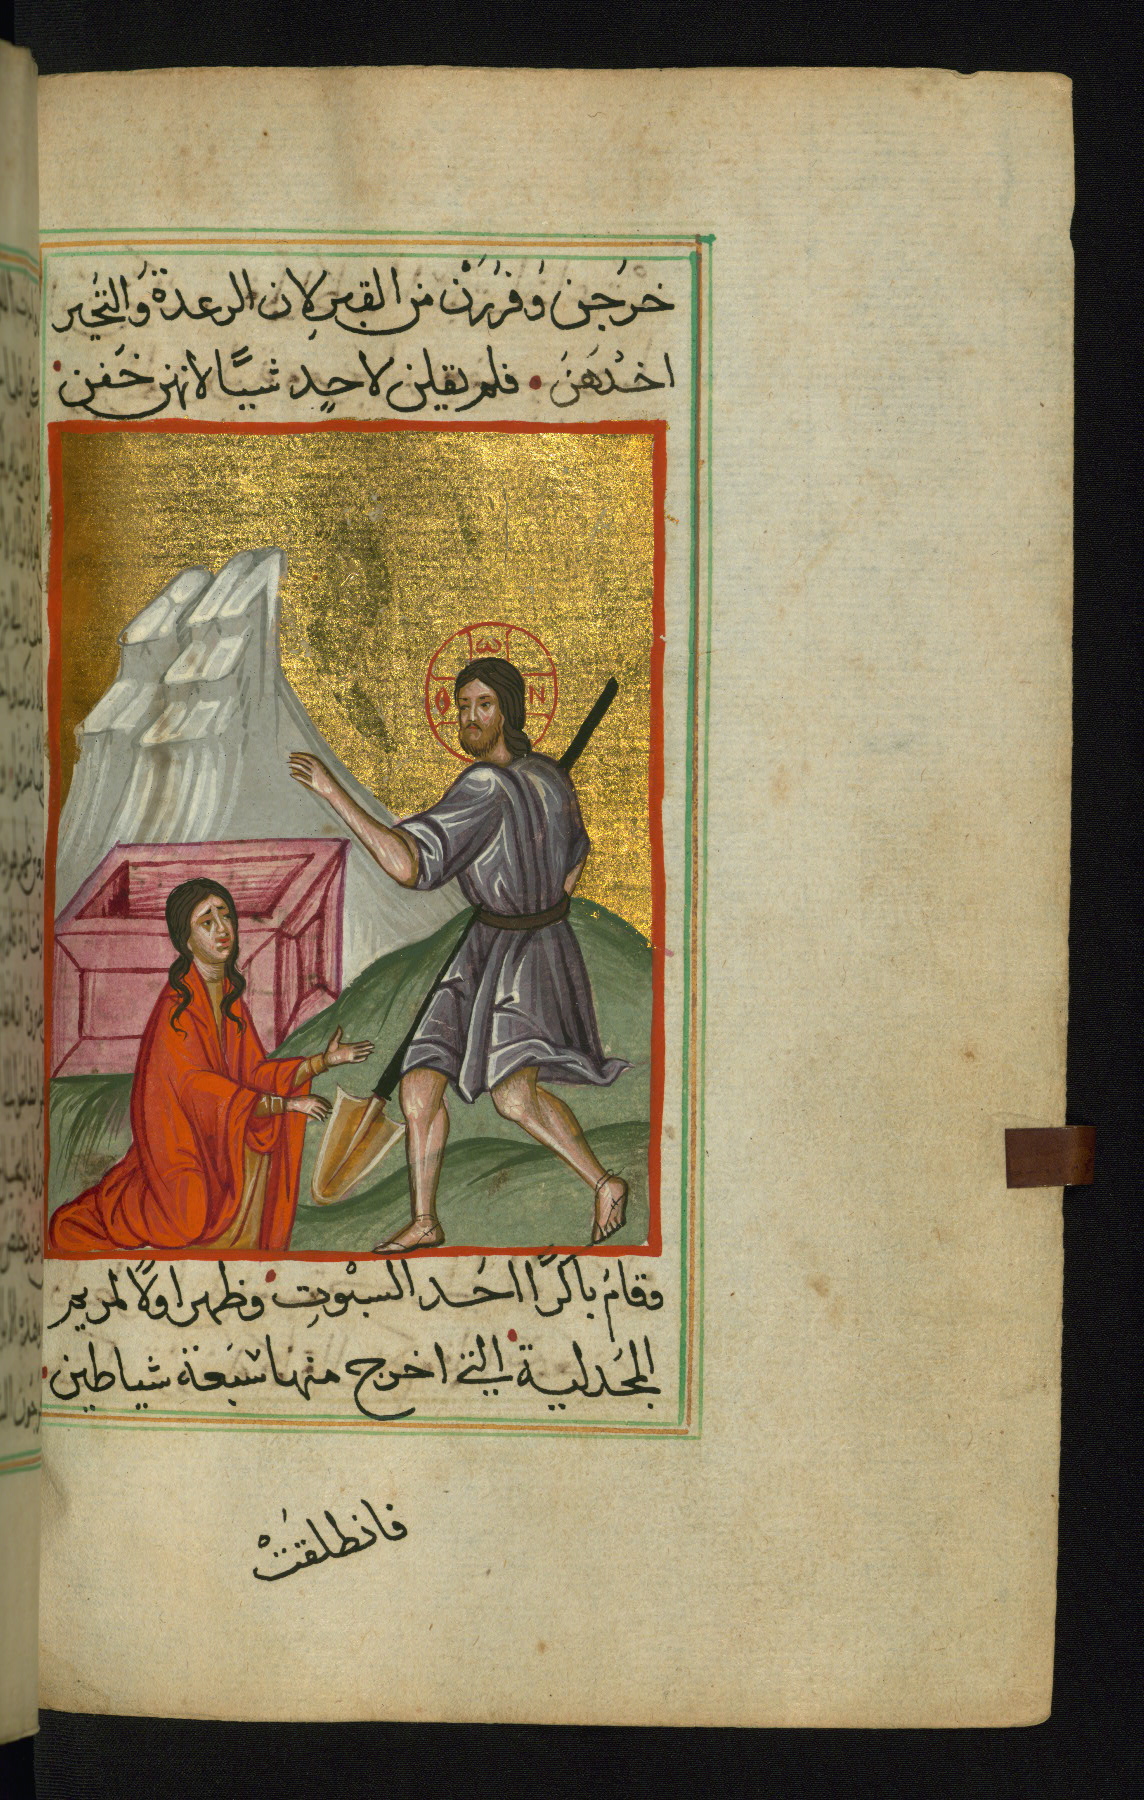 خرَجن وَفرَرَنْ من القبر لِان الرعدة وَالتَحَير
اخدهَنَ . فلم يقلن لاحدٍ شيًا لانهن خَفن .
ὁ ω Ν
وقامَ باكرًا احَد السبْوتِ . وظهر اولًا لمريم
المجَدلية . التي اخرج منها سَبَعة شياطين .
فانطلقَتْ